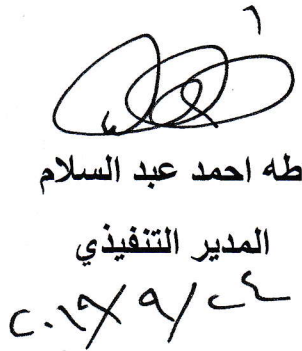 طه احمد عبد السلام
المدير التنفيذي
٢٠١٩/٩/٢٤